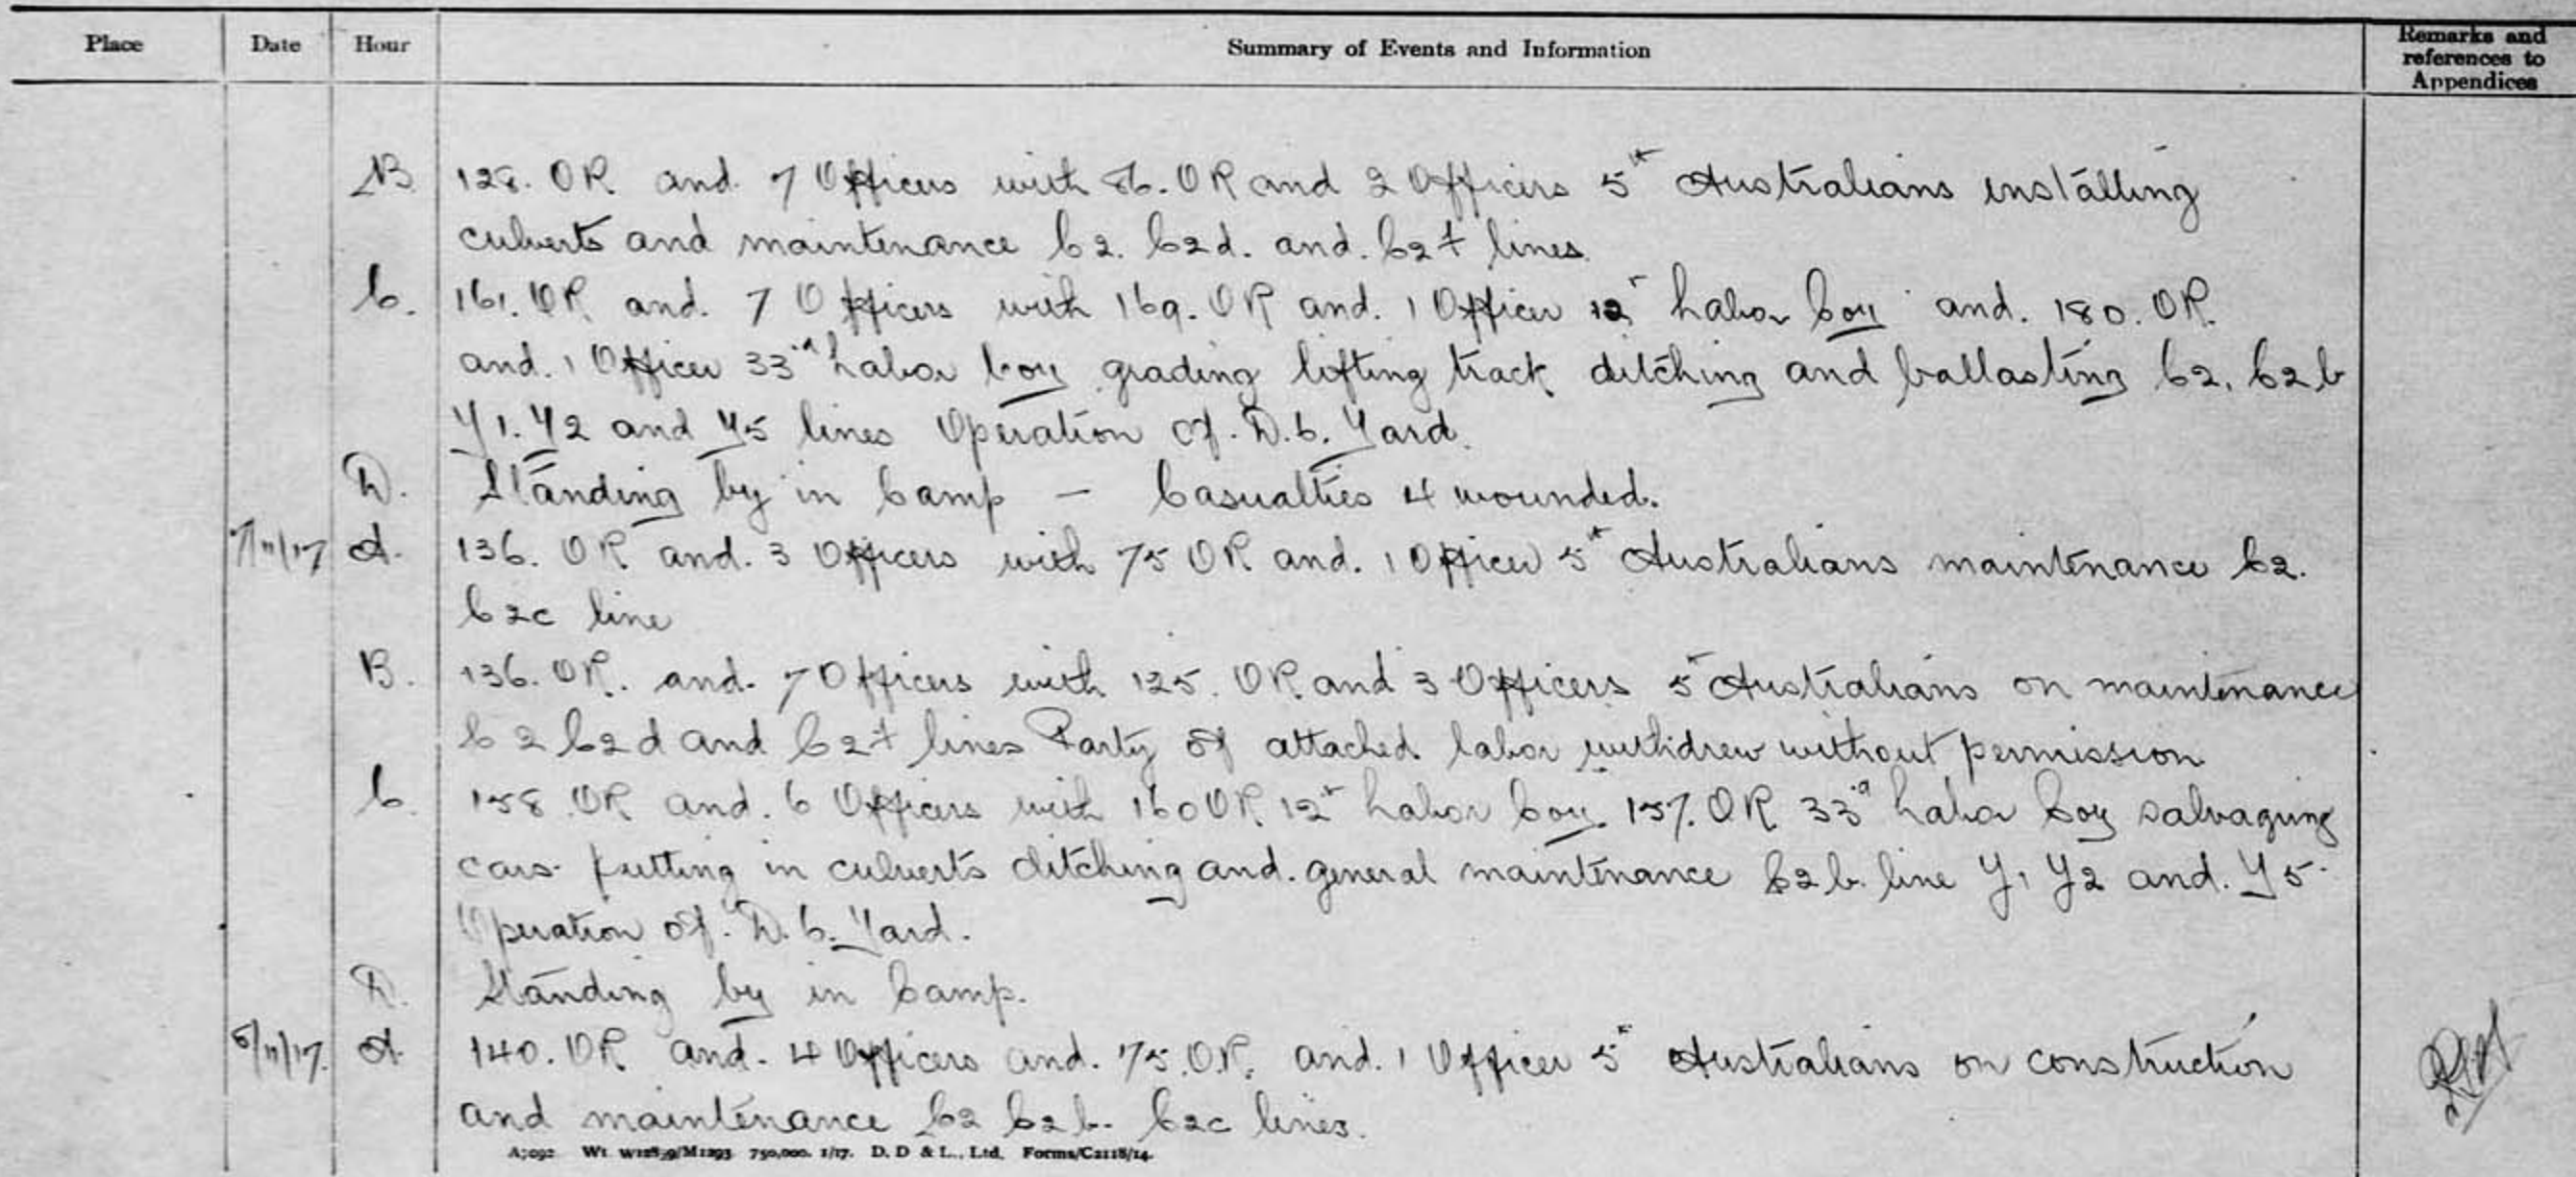 Place Date Hour Summary of Events and Information Remarks and references to Appendices
B. 128. OR and 7 Officers with 86. OR and 2 Officers 5th Australians installing
culverts and maintenance C2. C2d. and. C2f lines.
C. 161. OR and. 7 Officers with 169. OR and. 1 Officer 12th Labor Coy and. 180. OR.
and. 1 Officer 33rd Labor Coy grading lifting track ditching and ballasting C2. C2b
Y1. Y2 and Y5 lines Operation of. D.C. Yard.
D. Standing by in Camp – Casualties 4 wounded.
7/11/17 A. 136. OR and. 3 Officers with 75 OR and. 1 Officer 5th Australians maintenance C2.
C2c line
B. 136. OR. and. 7 Officers with 125. OR and 3 Officers 5th Australians on maintenance
C2 C2d and C2f lines Party of attached labor withdrew without permission
C. 158. OR and. 6 Officers with 160 OR 12th Labor Coy. 157. OR 33rd Labor Coy salvaging
cars. putting in culverts ditching and. general maintenance C2b. line Y1 Y2 and. Y5.
Operation of. D.C. Yard.
D. Standing by in Camp.
/11/17. A. 140. OR and. 4 Officers and. 75. O.R. and. 1 Officer 5th Australians on construction
and maintenance C2 C2b. C2c lines.
750,000. 1/17. D. D & L., Ltd. Forms/C2118/14.